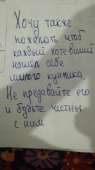 Хочу также
пожелать, чтоб
каждый хотевший
нашол себе
милого кунтика
Не предавайте его
и будьте честны
с ним